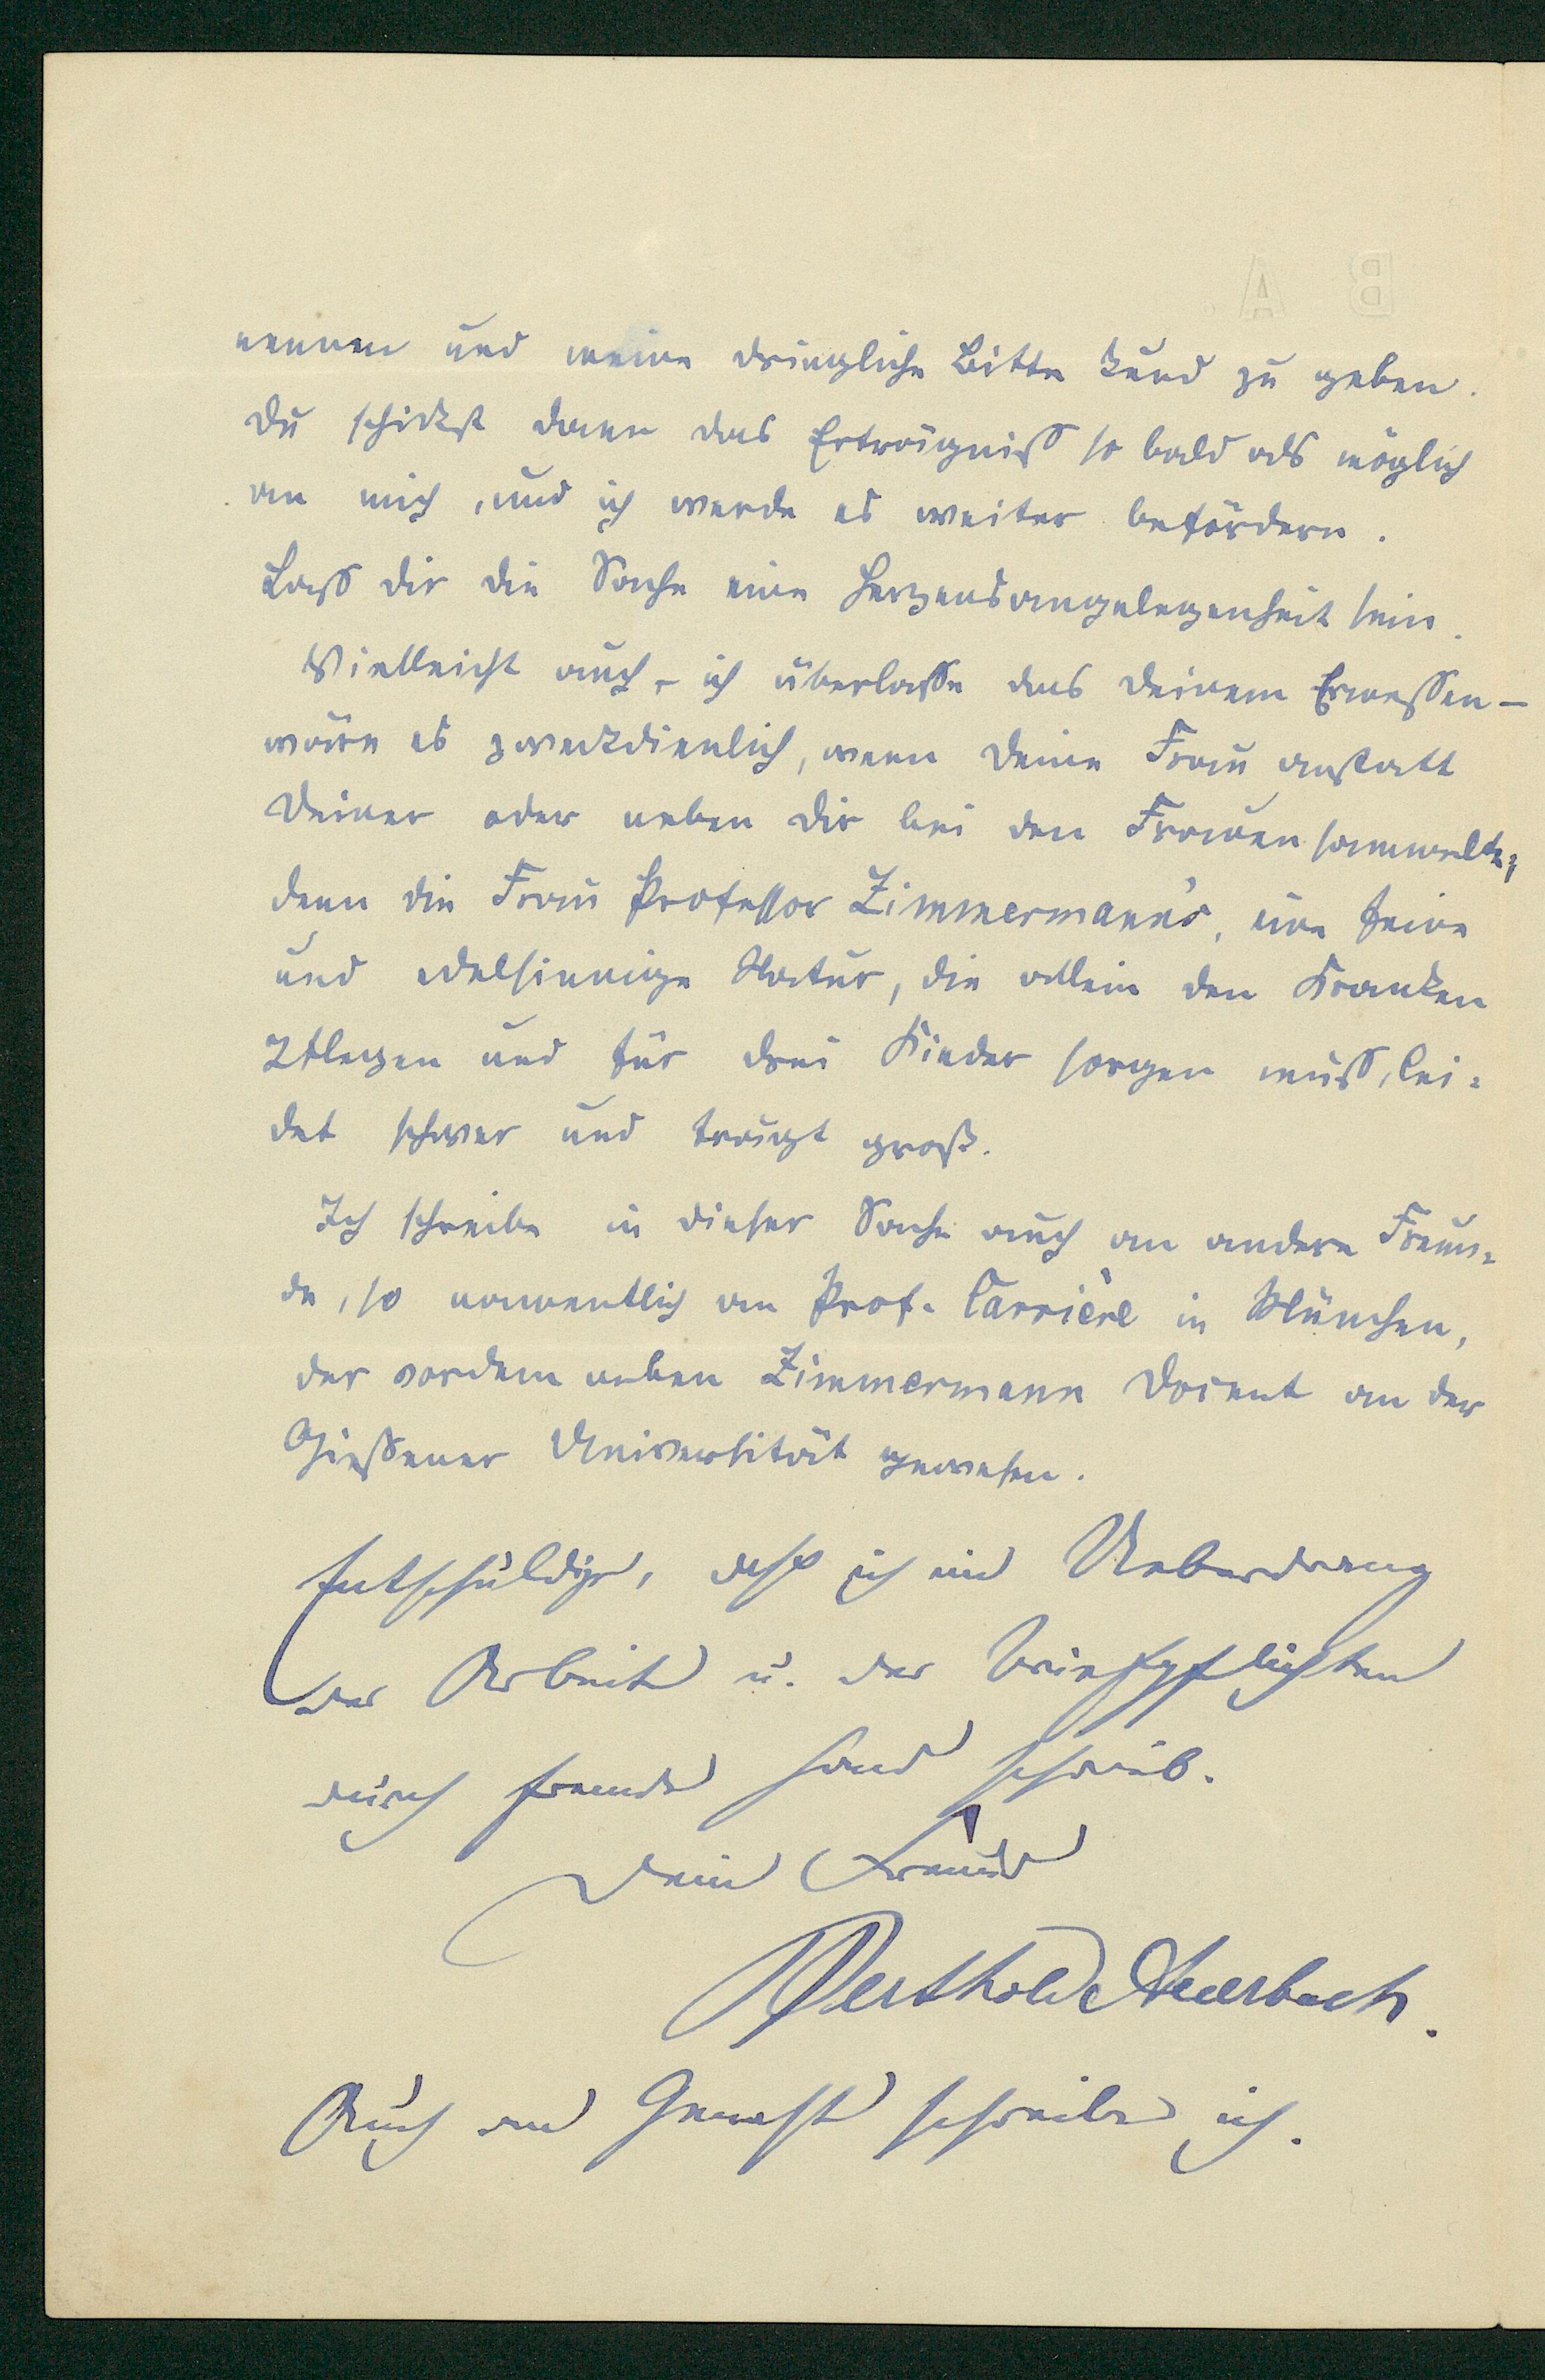 B A.
nennen und meine dringliche Bitte kund zu geben.
Du schickst dann das Erträgniß so bald als möglich
an mich, und ich werde es weiter befördern.
Laß dir die Sache eine Herzensangelegenheit sein.
Vielleicht auch – ich überlasse das Deinem Ermessen –
wäre es zweckdienlich, wenn Deine Frau anstatt
Deiner oder neben Dir bei den Frauen sammelte;
denn die Frau Professor Zimmermann's, eine feine
und edelsinnige Natur, die allein den Kranken
pflegen und für drei Kinder sorgen muß, lei-
det schwer und trägt groß.
Ich schreibe in dieser Sache auch an andere Freun-
de, so namentlich an Prof. Carrière in München,
der vordem neben Zimmermann Docent an der
Gießener Universität gewesen.
Entschuldige, daß ich im Ueberdrang
der Arbeit u. der Briefpflichten
durch fremde Hand schreib.
Dein Freund
Berthold Auerbach.
Auch an Genast schreibe ich.